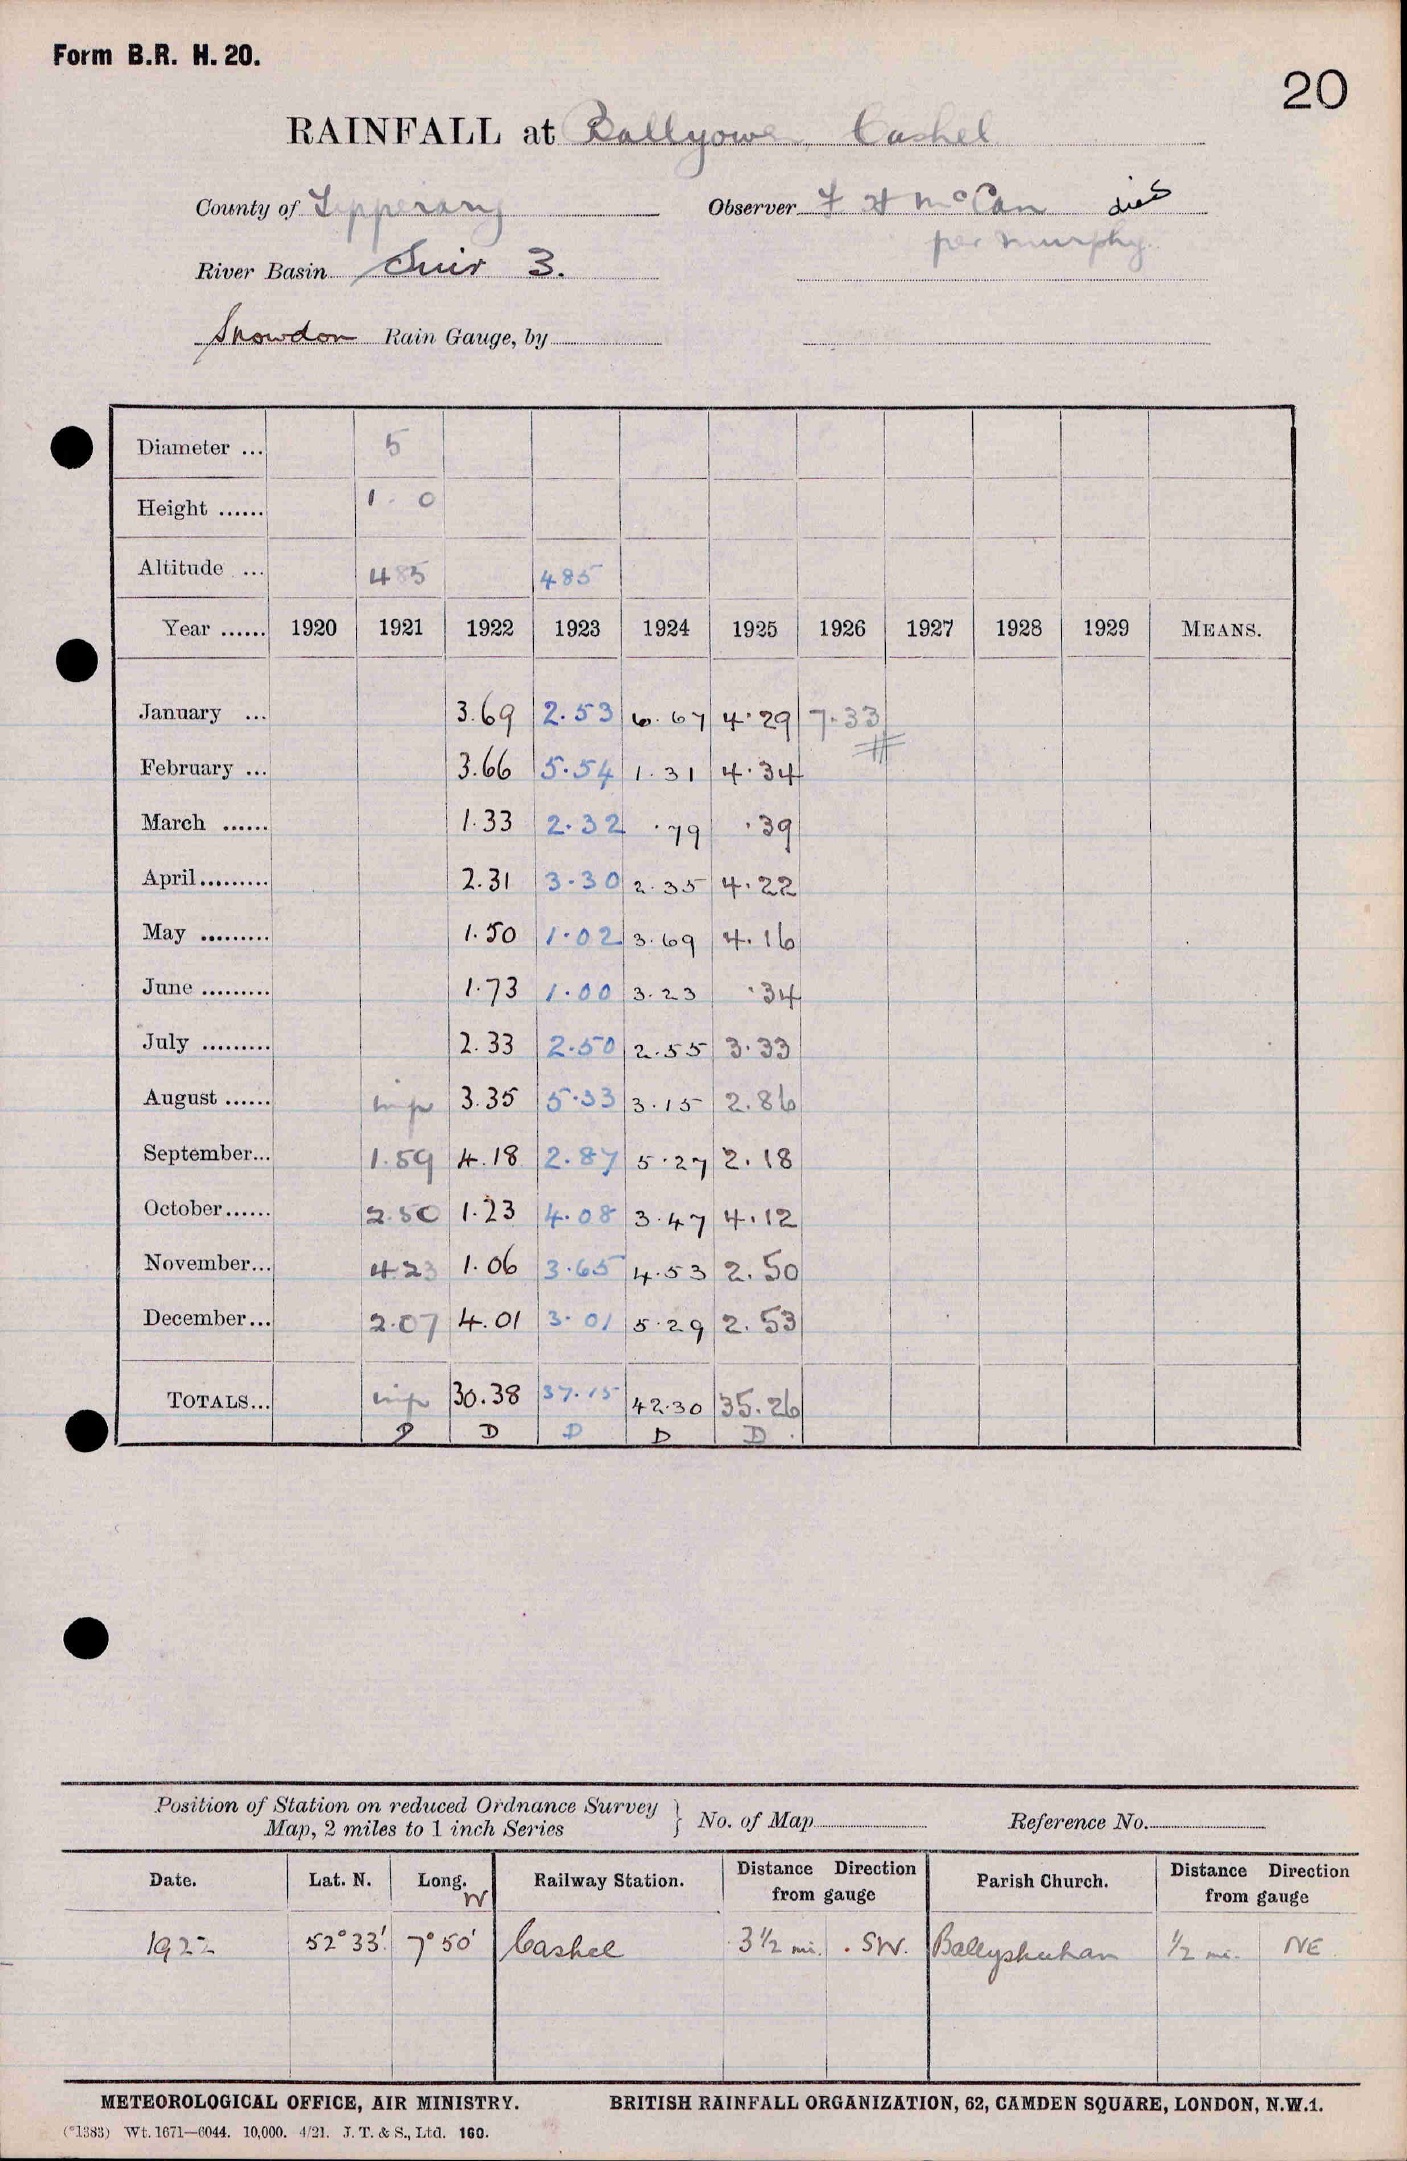 Form B.R. H. 20.
20
RAINFALL at Ballyowen, Cashel
County of Tipperary Observer F H McCan died
per Murphy.
River Basin Suir 3.
Snowdon Rain Gauge, by
Diameter ... 5
Height ...... 1 - 0
Altitude ... 485 485
Year ...... 1920 1921 1922 1923 1924 1925 1926 1927 1928 1929 MEANS.
January ... 3.69 2.53 6.67 4.29 7.33
February ... 3.66 5.54 1.31 4.34
March ...... 1.33 2.32 .79 .39
April......... 2.31 3.30 2.35 4.22
May ......... 1.50 1.02 3.69 4.16
June ......... 1.73 1.00 3.23 .34
July ......... 2.33 2.50 2.55 3.33
August ...... imp 3.35 5.33 3.15 2.86
September... 1.59 4.18 2.87 5.27 2.18
October...... 2.50 1.23 4.08 3.47 4.12
November... 4.23 1.06 3.65 4.53 2.50
December... 2.07 4.01 3.01 5.29 2.53
TOTALS... imp 30.38 37.15 42.30 35.26
D D D D D
Position of Station on reduced Ordnance Survey
Map, 2 miles to 1 inch Series } No. of Map Reference No.
Date. Lat. N. Long. W Railway Station. Distance Direction from gauge Parish Church. Distance Direction from gauge
1922 52° 33' 7° 50' Cashel 3½ mi. SW. ½ mi. NE
METEOROLOGICAL OFFICE, AIR MINISTRY. BRITISH RAINFALL ORGANIZATION, 62, CAMDEN SQUARE, LONDON, N.W.1.
(*1383) Wt. 1671—6044. 10,000. 4/21. J. T. & S., Ltd. 160.